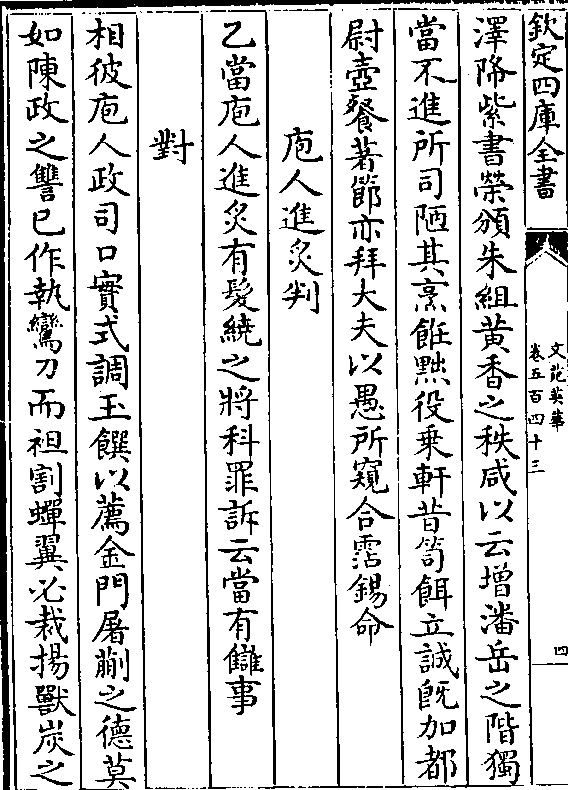 欽定四庫全書
文苑英華
卷五百四十三
四
澤降紫書榮頒朱組黄香之秩咸以云增潘岳之階獨
當不進所司陋其烹飪黜役乗軒昔笱餌立誠既加都
尉壺餐著節亦拜大夫以愚所窺合霑錫命
庖人進炙判
乙當庖人進炙有髮繞之將科罪訴云當有讎事
對
相彼庖人政司口實式調玉饌以薦金門屠蒯之德莫
如陳政之讐已作執鸞刀而袒割蟬翼必裁揚獸炭之